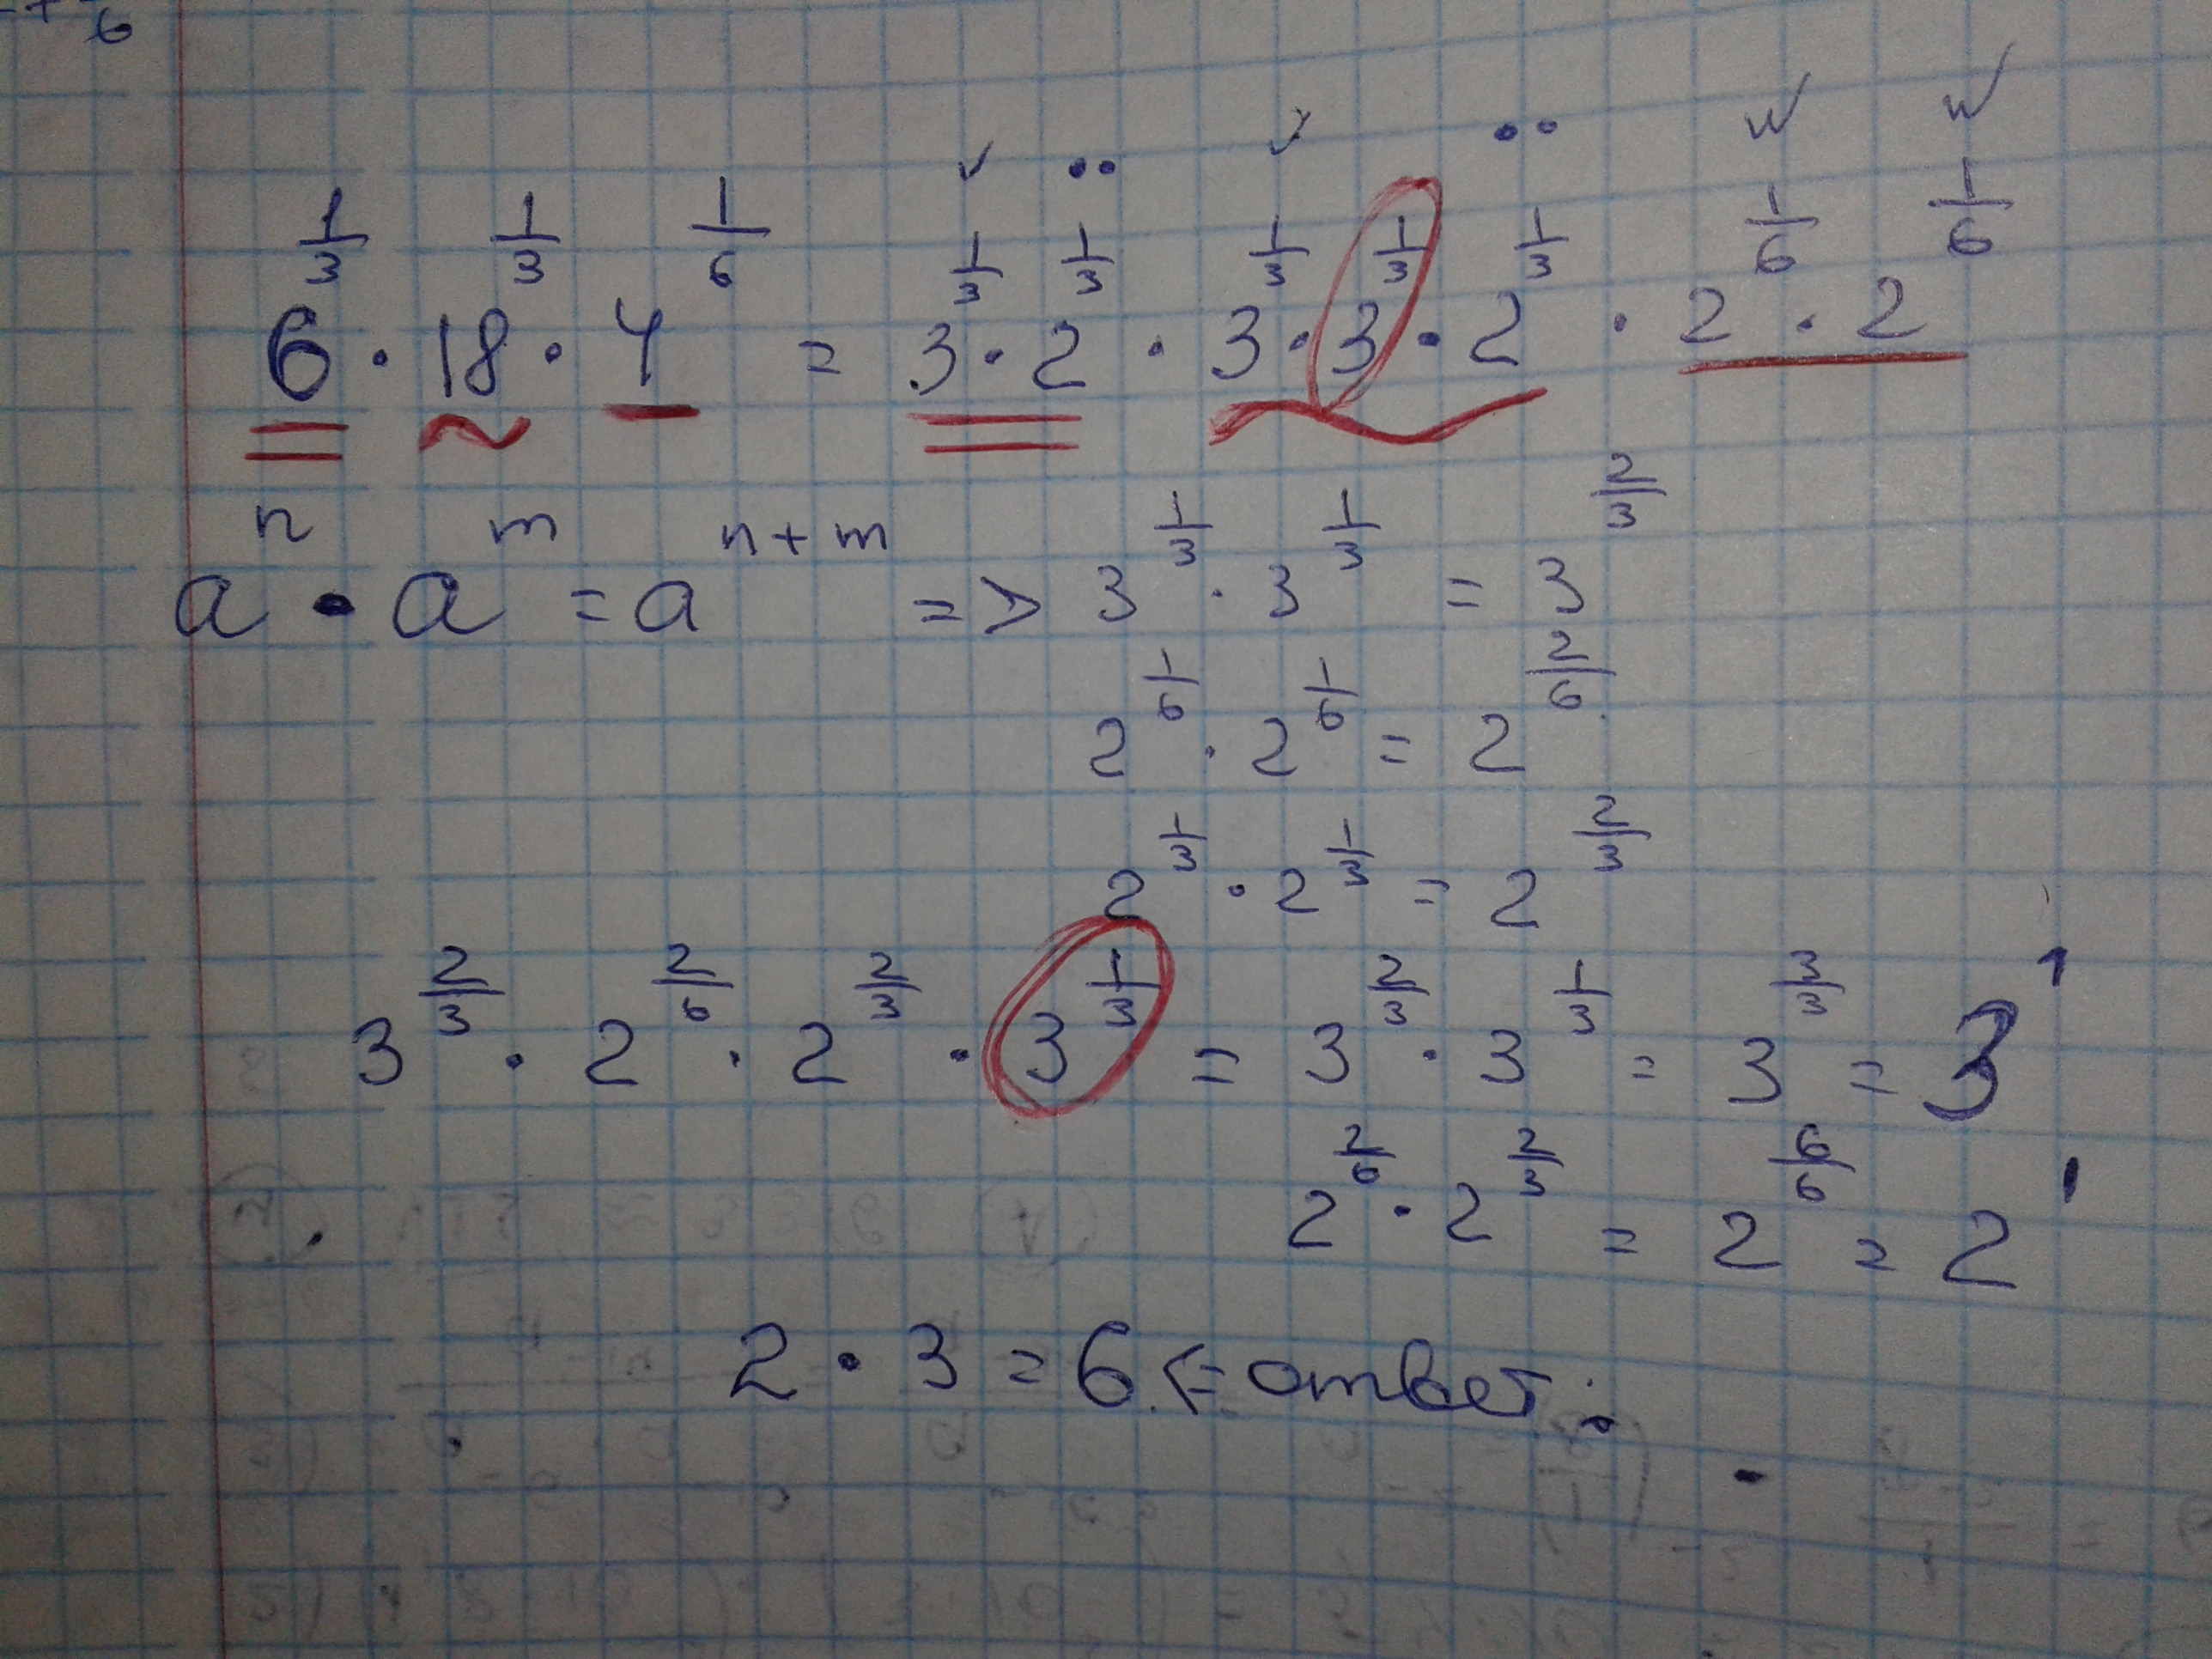 + 6
6^(1/3) · 18^(1/3) · 4^(1/6) = 3^(1/3) · 2^(1/3) · 3^(1/3) · 3^(1/3) · 2^(1/3) · 2^(1/6) · 2^(1/6)
a^n · a^m = a^(n+m) => 3^(1/3) · 3^(1/3) = 3^(2/3)
2^(1/6) · 2^(1/6) = 2^(2/6)
2^(1/3) · 2^(1/3) = 2^(2/3)
3^(2/3) · 2^(2/6) · 2^(2/3) · 3^(1/3) = 3^(2/3) · 3^(1/3) = 3^(3/3) = 3^1
2^(2/6) · 2^(2/3) = 2^(6/6) = 2^1
2 · 3 = 6 <= ответ: